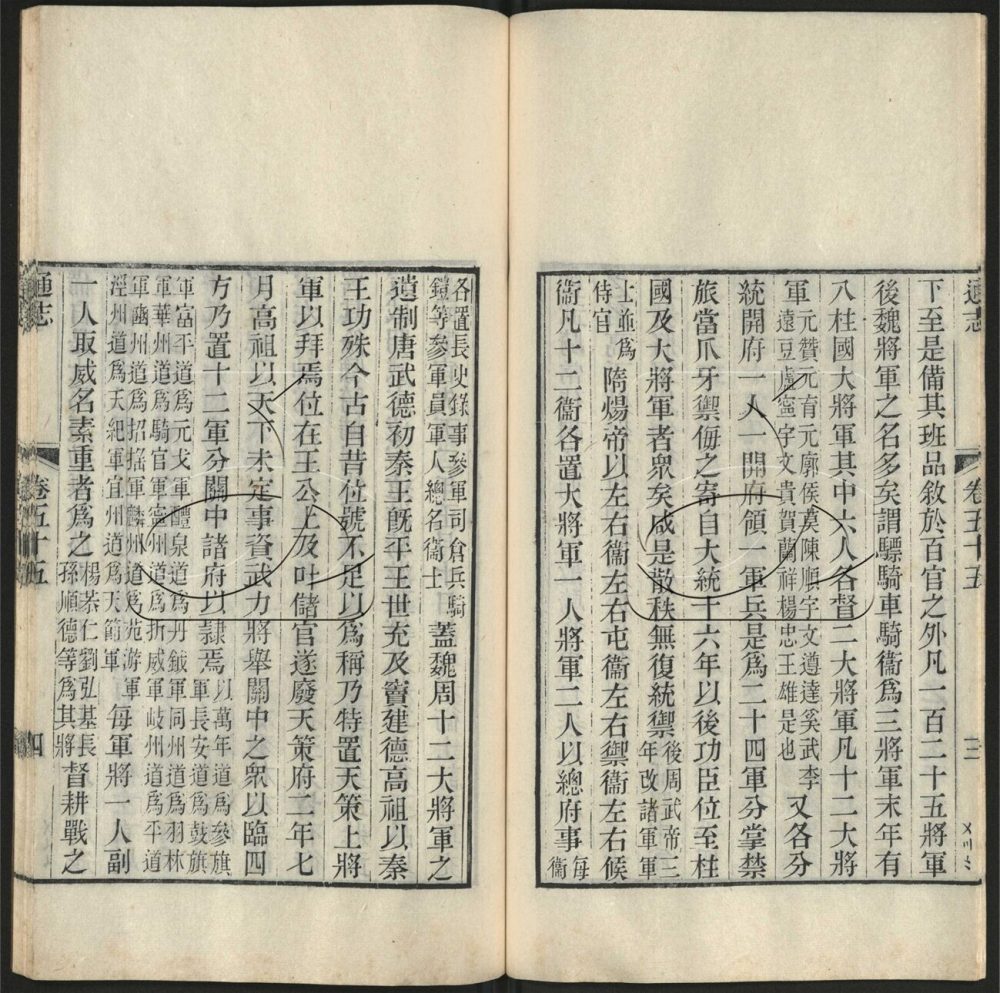 通志
卷五十五
三
下至是備其班品敘於百官之外凡一百二十五將軍
後魏將軍之名多矣謂驃騎車騎衞爲三將軍末年有
八柱國大將軍其中六人各督二大將軍凡十二大將
軍元贊元育元廓侯莫陳順宇文遵達奚武李
遠豆盧寧宇文貴賀蘭祥楊忠王雄是也
又各分
統開府一人一開府領一軍兵是爲二十四軍分掌禁
旅當爪牙禦侮之寄自大統十六年以後功臣位至柱
國及大將軍者衆矣咸是散秩無復統禦
後周武帝三
年改諸軍軍
士並爲
侍官
隋煬帝以左右衞左右屯衞左右禦衞左右候
衞凡十二衞各置大將軍一人將軍二人以總府事
每
衞
各置長史錄事參軍司倉兵騎
鎧等參軍員軍人總名衞士
蓋魏周十二大將軍之
遺制唐武德初秦王旣平王世充及竇建德高祖以秦
王功殊今古自昔位號不足以爲稱乃特置天策上將
軍以拜焉位在王公上及升儲官遂廢天策府二年七
月高祖以天下未定事資武力將舉關中之衆以臨四
方乃置十二軍分關中諸府以隸焉
以萬年道爲參旗
軍長安道爲鼓旗
軍富平道爲元戈軍醴泉道爲井鉞軍同州道爲羽林
軍華州道爲騎官軍寧州道爲折威軍岐州道爲平道
軍豳州道爲招搖軍麟州道爲苑游軍
涇州道爲天紀軍宜州道爲天節軍
每軍將一人副
一人取威名素重者爲之
楊恭仁劉弘基長
孫順德等爲其將
督耕戰之
通志
卷五十五
四